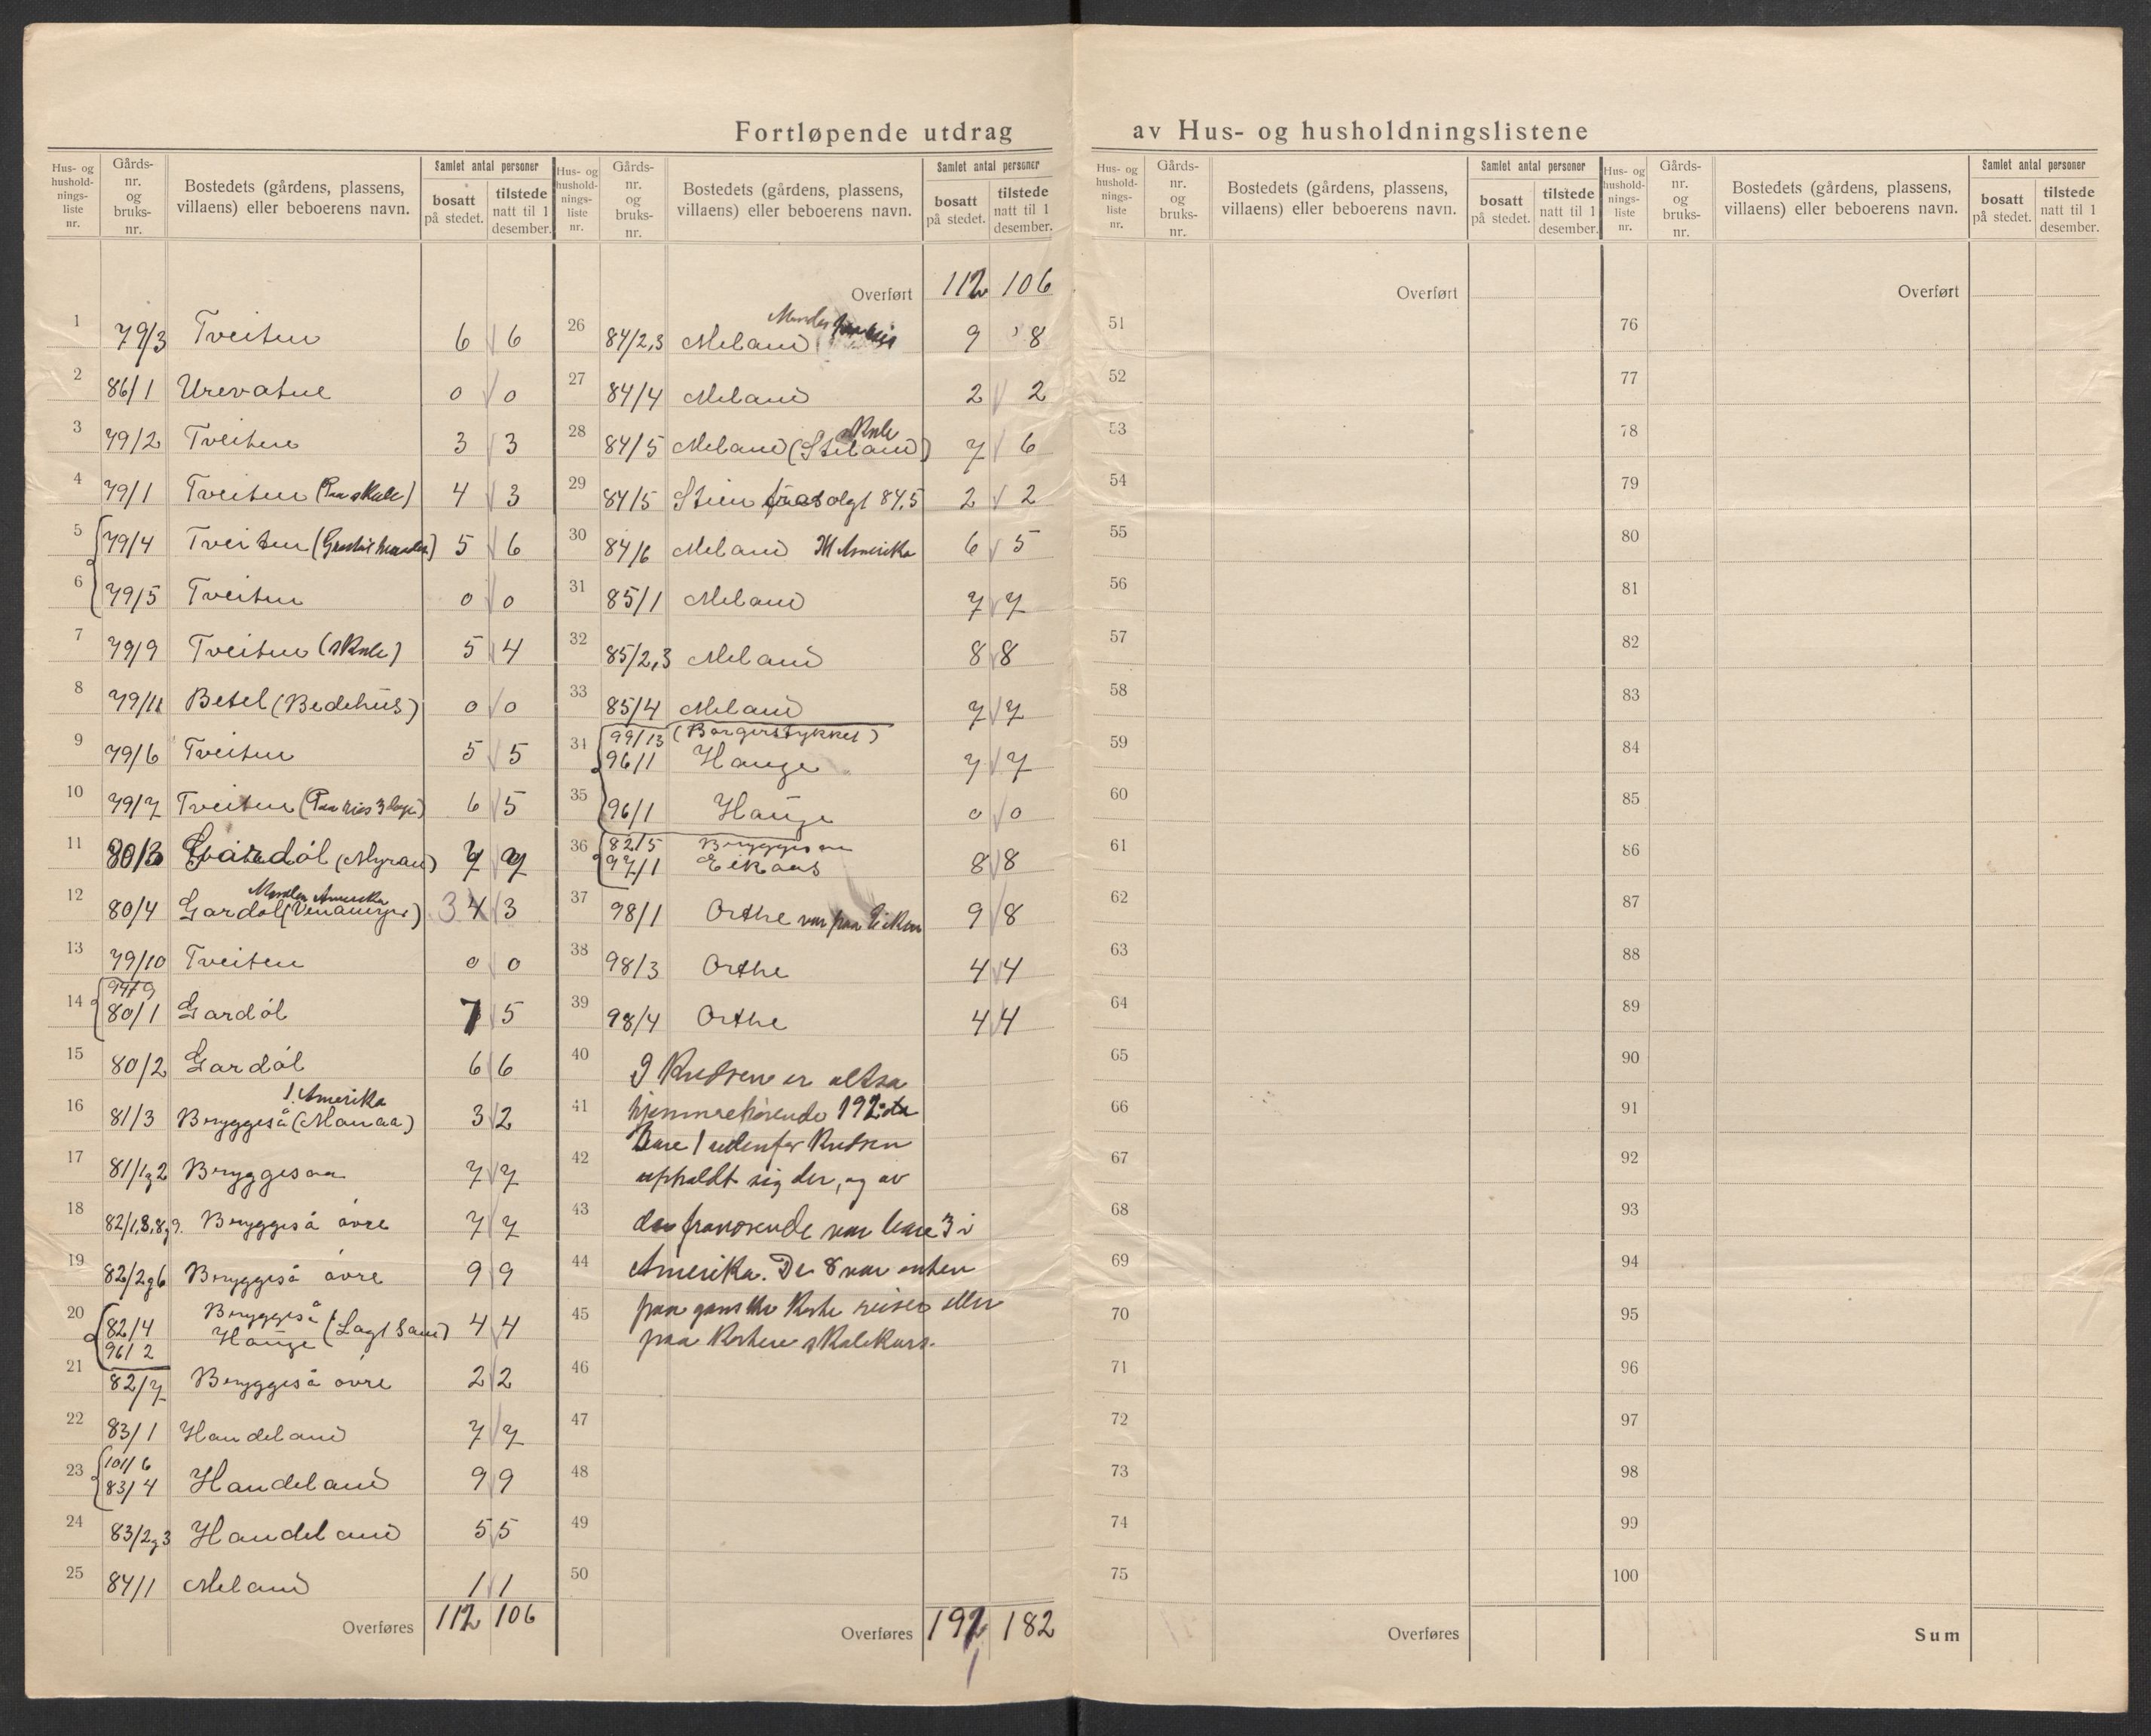 Fortløpende utdrag av Hus- og husholdningslistene
Hus- og hushold- nings- liste nr.
Gårds- nr. og bruks- nr.
Bostedets (gårdens, plassens, villaens) eller beboerens navn.
Samlet antal personer
bosatt på stedet.
tilstede natt til 1 desember.
1 79/3 Tveiten 6 6
2 86/1 Urevatne 0 0
3 79/2 Tveiten 3 3
4 79/1 Tveiten (Paa skule) 4 3
5 79/4 Tveiten 5 6
6 79/5 Tveiten 0 0
7 79/9 Tveiten (skule) 5 4
8 79/11 Betel (Bedehus) 0 0
9 79/6 Tveiten 5 5
10 79/7 Tveiten 6 5
11 80/3 Gardøl (Myran) 7 7
12 80/4 Gardøl 3 3
Amerika
13 79/10 Tveiten 0 0
14 80/1 Gardøl 7 5
15 80/2 Gardøl 6 6
1. Amerika
16 81/3 Bryggeså (Monaa) 3 2
17 81/1,2 Bryggesaa 7 7
18 82/1,3,8,9. Bryggeså øvre 7 7
19 82/2 6 Bryggeså øvre 9 9
20 82/4 Bryggeså
96/2 Hauge 4 4
21 82/7 Bryggeså øvre 2 2
22 83/1 Handeland 7 7
23 101/6
83/4 Handeland 9 9
24 83/2 3 Handeland 5 5
25 84/1 Meland 1 1
Overføres 112 106
Hus- og hushold- nings- liste nr.
Gårds- nr. og bruks- nr.
Bostedets (gårdens, plassens, villaens) eller beboerens navn.
Samlet antal personer
bosatt på stedet.
tilstede natt til 1 desember.
Overført 112 106
26 84/2,3 Meland 9 8
27 84/4 Meland 2 2
28 84/5 Meland skule 7 6
29 84/5 Stien 84,5 2 2
30 84/6 Meland Amerika 6 5
31 85/1 Meland 7 7
32 85/2,3 Meland 8 8
33 85/4 Meland 7 7
34 99/13 (Borgerstykket)
96/1 Hauge 7 7
35 96/1 Hauge 0 0
36 82/5 Bryggesaa
97/1 Eikaas 8 8
37 98/1 Orthe var paa Eiken 9 8
38 98/3 Orthe 4 4
39 98/4 Orthe 4 4
40 I Kredsen er altsa
41 hjemmehørende 192
Bare 1 udenfor Kredsen
42 opholdt sig der, og av
43 de fraværende var bare 3 i
44 Amerika. De 8 var enten
45 paa ganske korte reiser eller
paa kortere skolekurs.
46
47
48
49
50
Overføres 191 182
Hus- og hushold- nings- liste nr.
Gårds- nr. og bruks- nr.
Bostedets (gårdens, plassens, villaens) eller beboerens navn.
Samlet antal personer
bosatt på stedet.
tilstede natt til 1 desember.
Overført
51
52
53
54
55
56
57
58
59
60
61
62
63
64
65
66
67
68
69
70
71
72
73
74
75
Overføres
Hus- og hushold- nings- liste nr.
Gårds- nr. og bruks- nr.
Bostedets (gårdens, plassens, villaens) eller beboerens navn.
Samlet antal personer
bosatt på stedet.
tilstede natt til 1 desember.
Overført
76
77
78
79
80
81
82
83
84
85
86
87
88
89
90
91
92
93
94
95
96
97
98
99
100
Sum